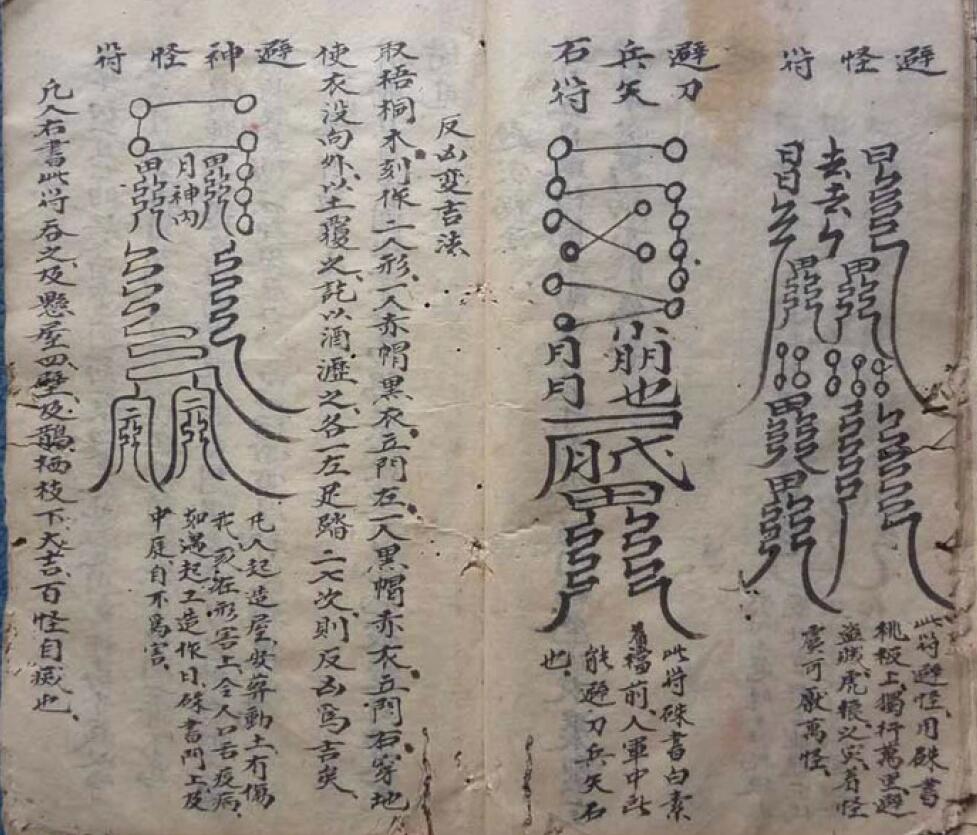 避怪符
此符避怪用硃書
桃板上獨行萬里避
盜賊虎狼之灾若怪
處可厭萬怪
避刀
兵矢
石符
此符硃書白素
襠前人軍中
能避刀兵矢石
也
反凶変吉法
取梧桐木刻作二人形一人赤帽黑衣立門左一人黑帽赤衣立門右穿地
使衣没向外以土覆之訖以酒瀝之各一左足踏二七次則反凶為吉矣
避神怪符
凡人起造屋安葬動土有傷
形害上令人口舌疫病
如遇起工造作日硃書門上及
中庭自不為害
凡人右書此符吞之及懸屋四壁及鵲栖枝下大吉百怪自滅也